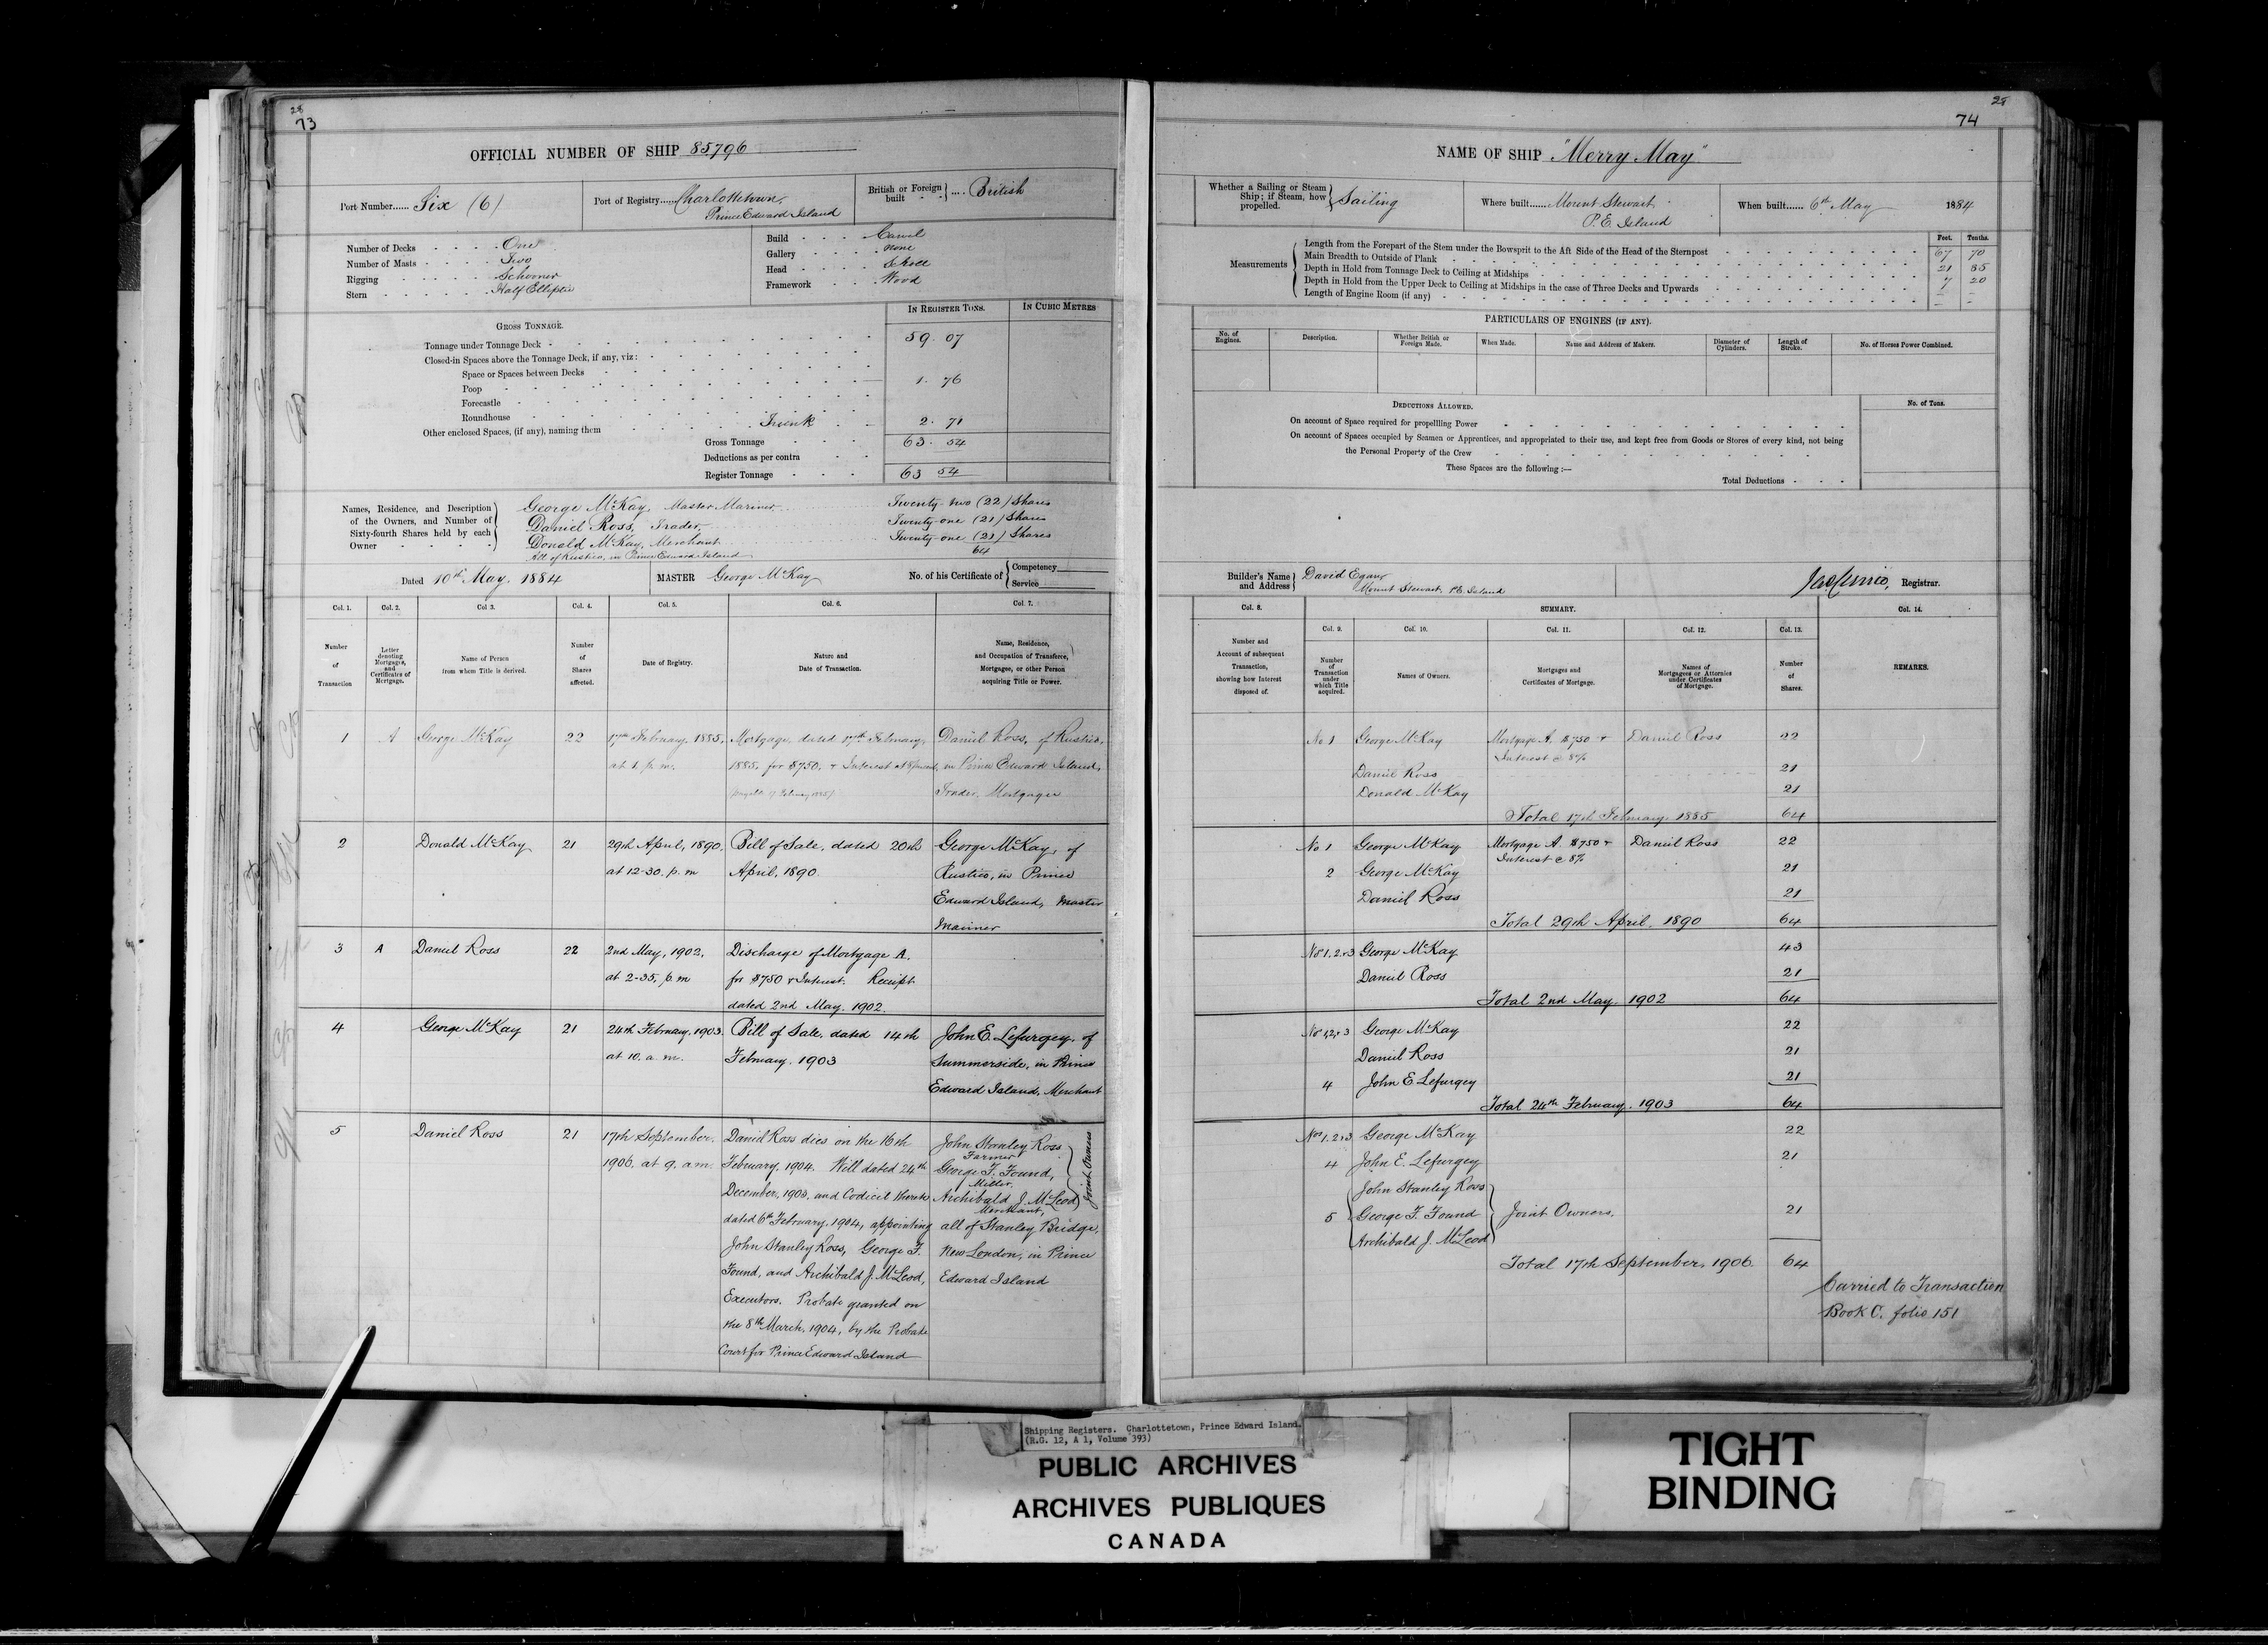 28
73
OFFICIAL NUMBER OF SHIP 85796
Port Number...... Six (6)
Port of Registry...... Charlottetown,
Prince Edward Island
British or Foreign built .... British
Number of Decks One
Number of Masts Two
Rigging Schooner
Stern Half Elliptic
Build Carvel
Gallery None
Head
Framework Wood
IN REGISTER TONS.
IN CUBIC METRES
GROSS TONNAGE.
Tonnage under Tonnage Deck 59. 07
Closed-in Spaces above the Tonnage Deck, if any, viz:
Space or Spaces between Decks
Poop 1. 76
Forecastle
Roundhouse
Other enclosed Spaces, (if any), naming them Trunk 2. 71
Gross Tonnage 63. 54
Deductions as per contra
Register Tonnage 63 54
Names, Residence, and Description of the Owners, and Number of Sixty-fourth Shares held by each Owner
George McKay, Master Mariner Twenty-two (22) Shares
Daniel Ross, Trader, Twenty-one (21) Shares
Donald McKay, Merchant Twenty-one (21) Shares
All of Rustico, in Prince Edward Island 64
Dated 10th May, 1884
MASTER George McKay
No. of his Certificate of Competency
Service
Col. 1. Col. 2. Col. 3. Col. 4. Col. 5. Col. 6. Col. 7.
Number of Transaction
Letter denoting Mortgages, and Certificates of Mortgage.
Name of Person from whom Title is derived.
Number of Shares affected.
Date of Registry.
Nature and Date of Transaction.
Name, Residence, and Occupation of Transferee, Mortgagee, or other Person acquiring Title or Power.
1 A George McKay 22 17th February, 1885, Mortgage, dated 17th February, Daniel Ross, of Rustico,
at 1. p.m. 1885, for $750, & Interest at 8 percent, in Prince Edward Island,
Trader, Mortgagee
2 Donald McKay 21 29th April, 1890, Bill of Sale, dated 20th George McKay, of
at 12-30. p.m April, 1890. Rustico, in Prince
Edward Island, Master
Mariner
3 A Daniel Ross 22 2nd May, 1902, Discharge of Mortgage A.
at 2-35, p.m for $750 & Interest. Receipt
dated 2nd May. 1902.
4 George McKay 21 24th February, 1903 Bill of Sale, dated 14th John E. Lefurgey, of
at 10. a.m. February, 1903 Summerside, in Prince
Edward Island, Merchant
5 Daniel Ross 21 17th September, Daniel Ross dies on the 16th John Stanley Ross
Farmer
1906, at 9, a.m. February, 1904. Will dated 24th George F. Found,
Miller,
December, 1903, and Codicil thereto Archibald J. McLeod
Merchant,
Joint Owners
dated 6th February, 1904, appointing all of Stanley Bridge,
John Stanley Ross, George F. New London, in Prince
Found, and Archibald J. McLeod, Edward Island
Executors. Probate granted on
the 8th March, 1904, by the Probate
Court for Prince Edward Island
28
74
NAME OF SHIP "Merry May"
Whether a Sailing or Steam Ship; if Steam, how propelled. Sailing
Where built...... Mount Stewart
P.E. Island
When built...... 6th May 1884
Feet. Tenths.
Measurements
Length from the Forepart of the Stem under the Bowsprit to the Aft Side of the Head of the Sternpost 67 70
Main Breadth to Outside of Plank 21 85
Depth in Hold from Tonnage Deck to Ceiling at Midships 7 20
Depth in Hold from the Upper Deck to Ceiling at Midships in the case of Three Decks and Upwards
Length of Engine Room (if any)
PARTICULARS OF ENGINES (IF ANY).
No. of Engines.
Description.
Whether British or Foreign Made.
When Made.
Name and Address of Makers.
Diameter of Cylinders.
Length of Stroke.
No. of Horses Power Combined.
DEDUCTIONS ALLOWED.
No. of Tons.
On account of Space required for propellling Power
On account of Spaces occupied by Seamen or Apprentices, and appropriated to their use, and kept free from Goods or Stores of every kind, not being
the Personal Property of the Crew
These Spaces are the following :—
Total Deductions
Builder's Name and Address
David Egan
Mount Stewart, P.E. Island
Registrar.
Col. 8. SUMMARY. Col. 14.
Col. 9. Col. 10. Col. 11. Col. 12. Col. 13.
Number and Account of subsequent Transaction, showing how Interest disposed of.
Number of Transaction under which Title acquired.
Names of Owners.
Mortgages and Certificates of Mortgage.
Names of Mortgagees or Attornies under Certificates of Mortgage.
Number of Shares.
REMARKS.
No 1 George McKay Mortgage A, $750 & Daniel Ross 22
Interest @ 8%
Daniel Ross 21
Donald McKay 21
Total 17th February, 1885 64
No 1 George McKay Mortgage A. $750 & Daniel Ross 22
Interest @ 8%
2 George McKay 21
Daniel Ross 21
Total 29th April. 1890 64
Nos 1, 2 & 3 George McKay 43
Daniel Ross 21
Total 2nd May. 1902 64
Nos 1,2,& 3 George McKay 22
Daniel Ross 21
4 John E Lefurgey 21
Total 24th February, 1903 64
Nos 1, 2 & 3 George McKay 22
4 John E. Lefurgey 21
John Stanley Ross
5 George F. Found Joint Owners. 21
Archibald J. McLeod
Total 17th September, 1906 64
Carried to Transaction
Book C. folio 151
Shipping Registers. Charlottetown, Prince Edward Island.
(R.G. 12, A 1, Volume 393)
PUBLIC ARCHIVES
ARCHIVES PUBLIQUES
CANADA
TIGHT
BINDING